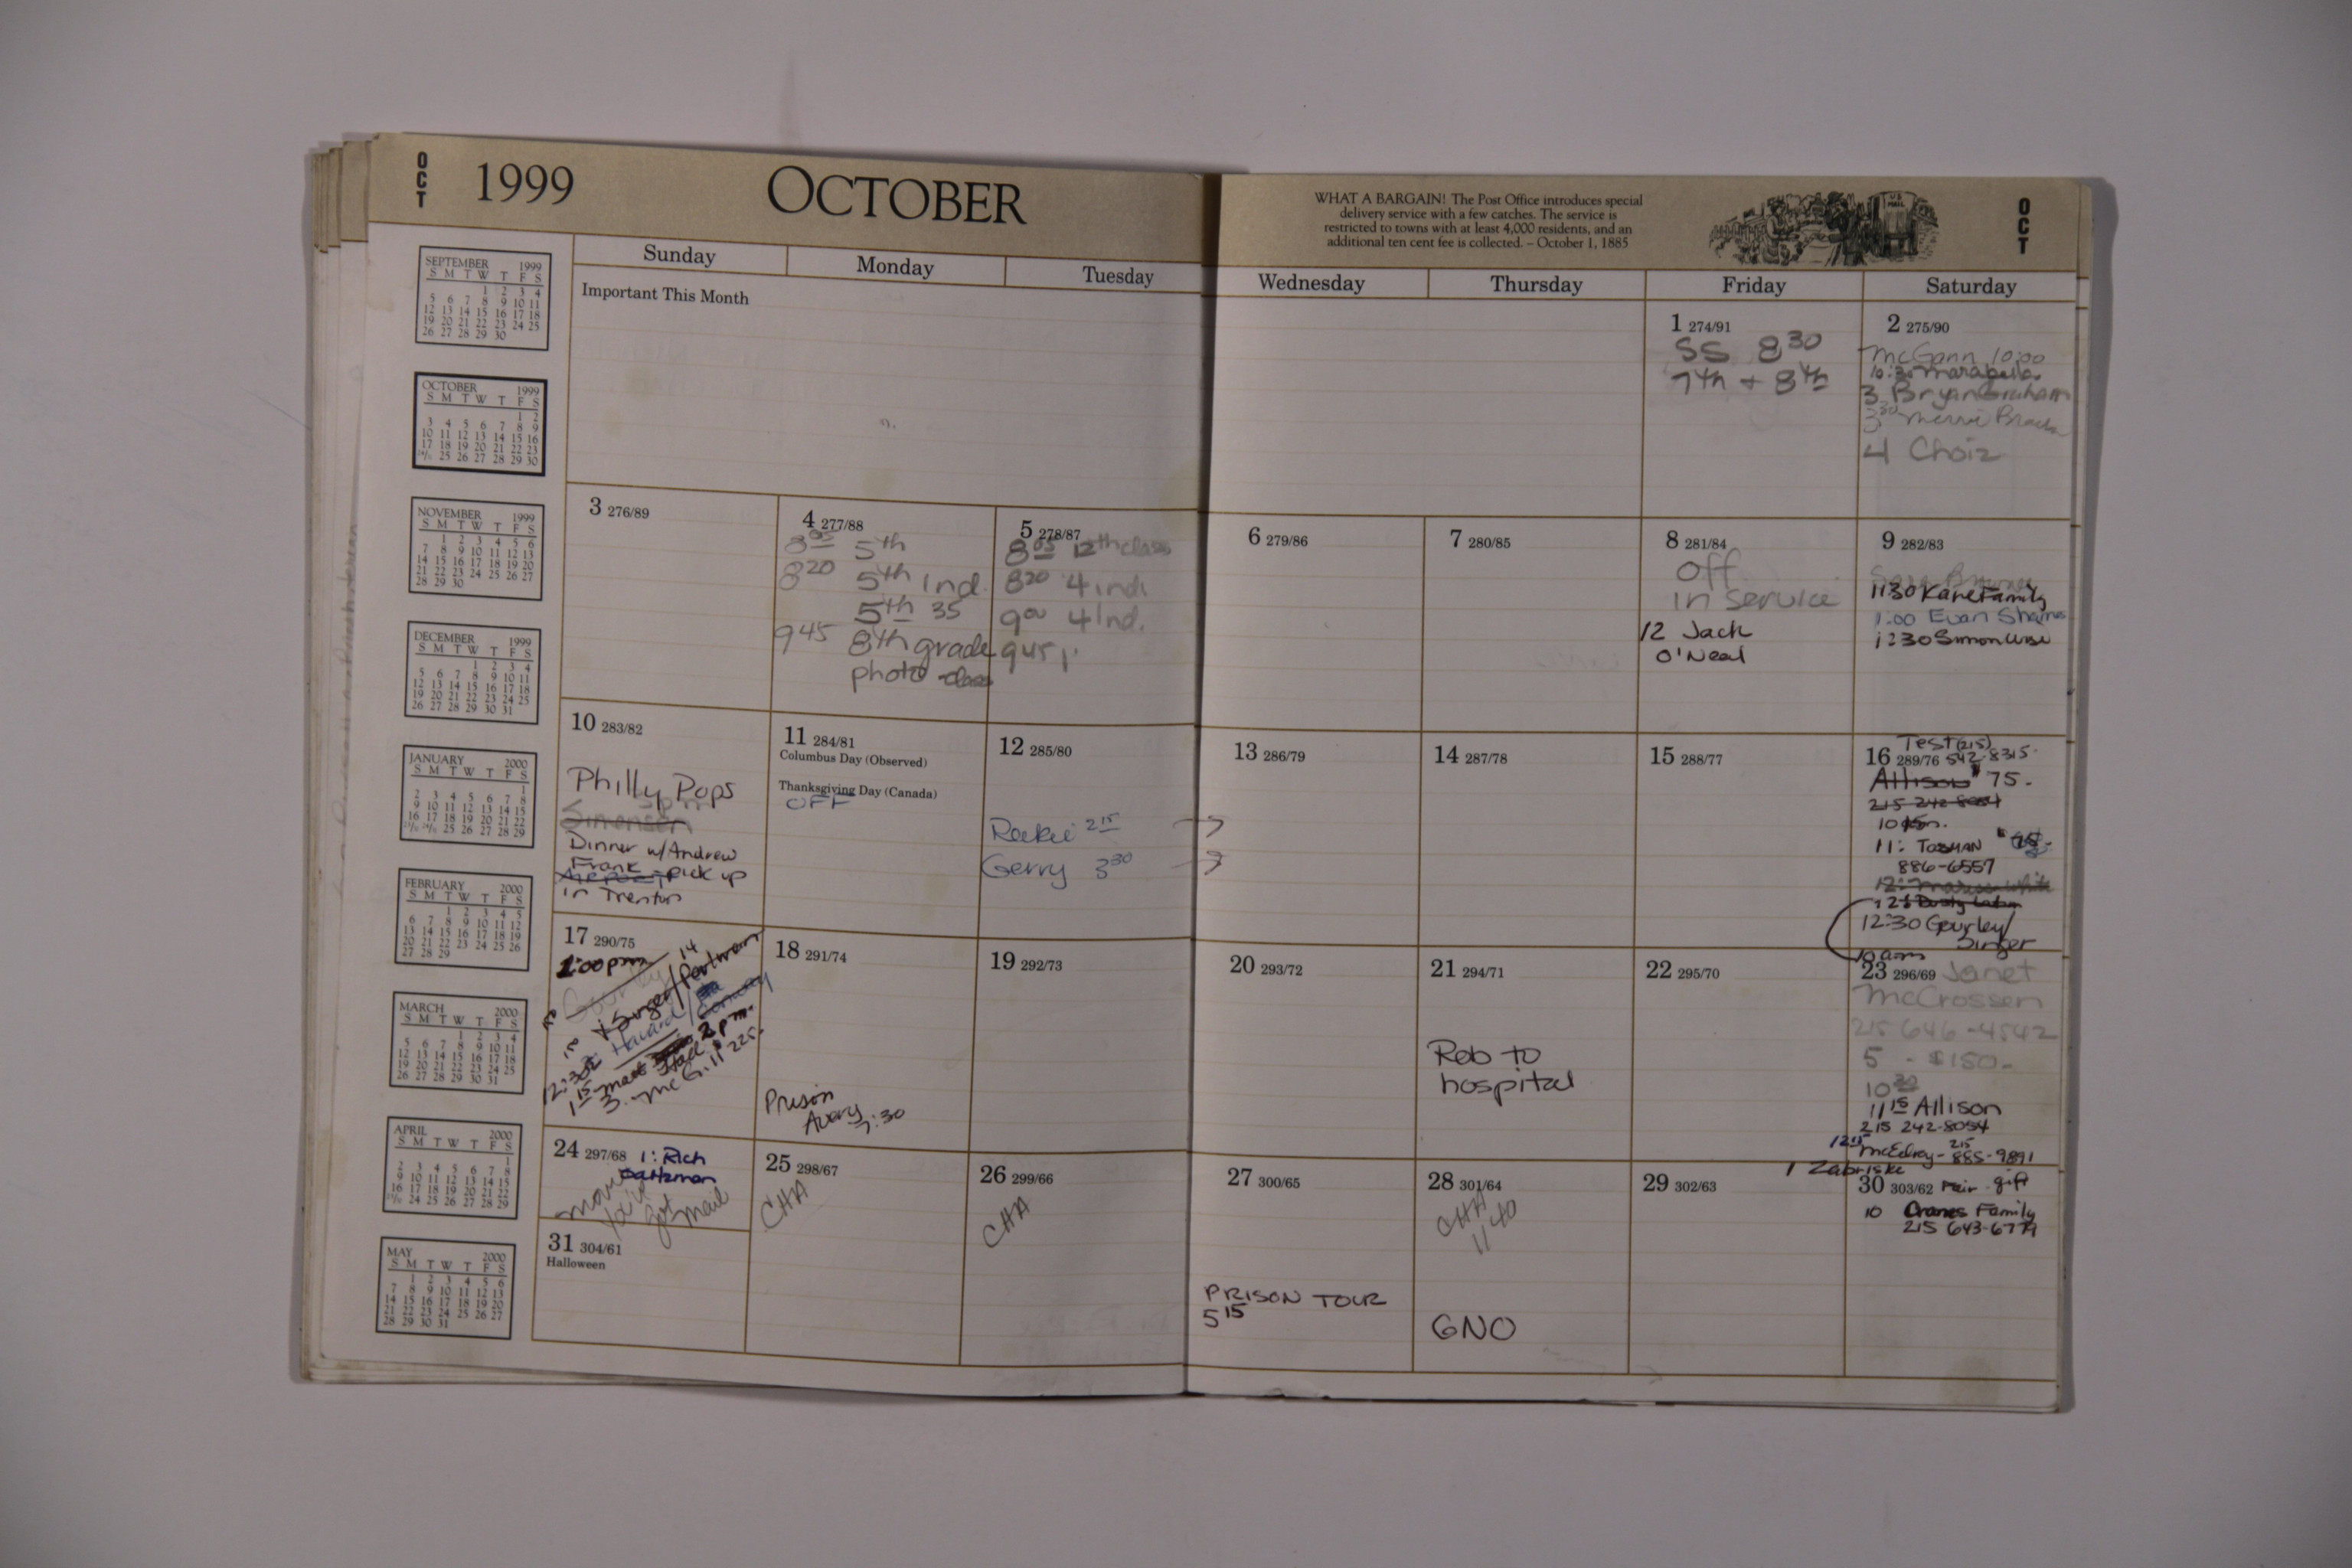 OCT
1999
OCTOBER
WHAT A BARGAIN! The Post Office introduces special
delivery service with a few catches. The service is
restricted to towns with at least 4,000 residents, and an
additional ten cent fee is collected. – October 1, 1885
U.S. MAIL
OCT
Sunday
Monday
Tuesday
Wednesday
Thursday
Friday
Saturday
Important This Month
1 274/91
SS 8 30
7th + 8th
2 275/90
McGann 10:00
10:30 Marabella
3 Bryan Graham
4 Choir
3 276/89
4 277/88
8 05 5th
8 20 5th Ind.
5th 35
9 45 8th grade
photo class
5 278/87
8 05 12th class
8 20 4 ind.
9 00 4 Ind.
9 45
6 279/86
7 280/85
8 281/84
off
in service
12 Jack
O'Neal
9 282/83
11:30 Kane Family
1:00 Evan Shames
1:30 Simon
10 283/82
Philly Pops
3pm
Simonsen
Dinner w/ Andrew
Frank - pick up
in Trenton
11 284/81
Columbus Day (Observed)
Thanksgiving Day (Canada)
OFF
12 285/80
2 15 →
Gerry 3 30 →
13 286/79
14 287/78
15 288/77
16 289/76
Test (215)
542-8315
Allison 75.
215 242-8054
10
11: TOBMAN
886-6557
12:30 Gourley/
Singer
10am
17 290/75
1:00pm
Singer/Portman
12:30
1 15 meet 2pm.
3. McGill 225.
18 291/74
Prison
Avery
7:30
19 292/73
20 293/72
21 294/71
Rob to
hospital
22 295/70
23 296/69 Janet
McCrossen
215 646-4542
5 - $150-
10 30
11 15 Allison
215 242-8054
12 15 McEdroy - 215
885-9891
1 Zabriskie
24 297/68 1: Rich
got mail
25 298/67
CHA
26 299/66
CHA
27 300/65
PRISON TOUR
5 15
28 301/64
CHA
11 40
GNO
29 302/63
30 303/62 Fair gift
10 Cranes Family
215 643-6779
31 304/61
Halloween
SEPTEMBER 1999
S M T W T F S
1 2 3 4
5 6 7 8 9 10 11
12 13 14 15 16 17 18
19 20 21 22 23 24 25
26 27 28 29 30
OCTOBER 1999
S M T W T F S
1 2
3 4 5 6 7 8 9
10 11 12 13 14 15 16
17 18 19 20 21 22 23
24/31 25 26 27 28 29 30
NOVEMBER 1999
S M T W T F S
1 2 3 4 5 6
7 8 9 10 11 12 13
14 15 16 17 18 19 20
21 22 23 24 25 26 27
28 29 30
DECEMBER 1999
S M T W T F S
1 2 3 4
5 6 7 8 9 10 11
12 13 14 15 16 17 18
19 20 21 22 23 24 25
26 27 28 29 30 31
JANUARY 2000
S M T W T F S
1
2 3 4 5 6 7 8
9 10 11 12 13 14 15
16 17 18 19 20 21 22
23/30 24/31 25 26 27 28 29
FEBRUARY 2000
S M T W T F S
1 2 3 4 5
6 7 8 9 10 11 12
13 14 15 16 17 18 19
20 21 22 23 24 25 26
27 28 29
MARCH 2000
S M T W T F S
1 2 3 4
5 6 7 8 9 10 11
12 13 14 15 16 17 18
19 20 21 22 23 24 25
26 27 28 29 30 31
APRIL 2000
S M T W T F S
1
2 3 4 5 6 7 8
9 10 11 12 13 14 15
16 17 18 19 20 21 22
23/30 24 25 26 27 28 29
MAY 2000
S M T W T F S
1 2 3 4 5 6
7 8 9 10 11 12 13
14 15 16 17 18 19 20
21 22 23 24 25 26 27
28 29 30 31